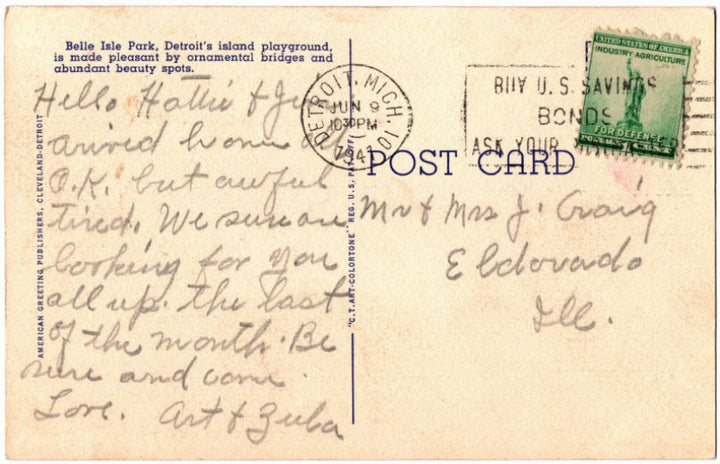 Belle Isle Park, Detroit's island playground,
is made pleasant by ornamental bridges and
abundant beauty spots.
Hello Hattie & Jim
arived home all
O.K. but awful
tired. We sure are
looking for you
all up. the last
of the month. Be
sure and come.
Love. Art & Zuba
AMERICAN GREETING PUBLISHERS, CLEVELAND-DETROIT
"C.T. ART-COLORTONE" REG. U.S. PAT. OFF.
DETROIT, MICH. 101
JUN 9
1030 PM
1947
BUY U.S. SAVINGS
BONDS
ASK YOUR
UNITED STATES OF AMERICA
INDUSTRY AGRICULTURE
FOR DEFENSE
POSTAGE 1 CENT
POST CARD
Mr & Mrs J. Craig
Eldorado
Ill.